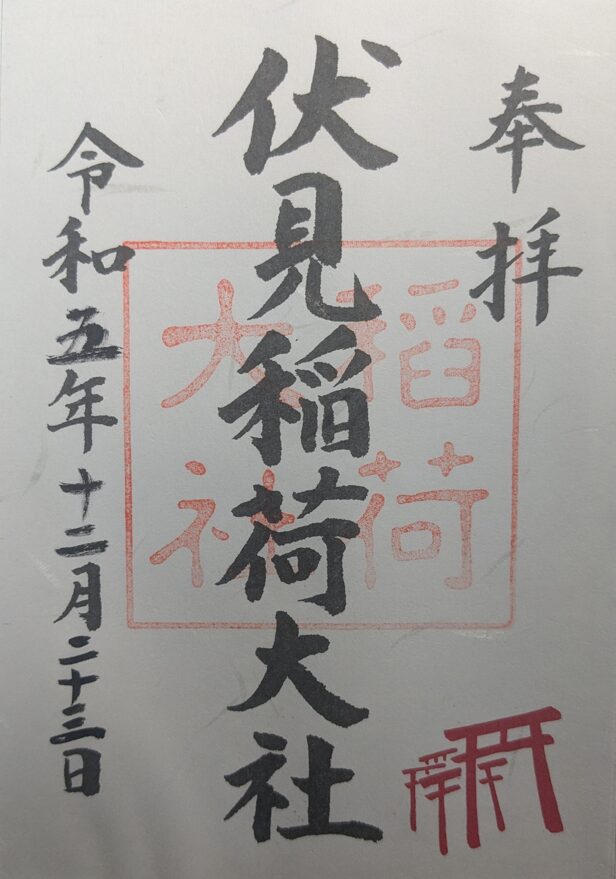 奉拝
伏見稲荷大社
稲荷
大社
令和五年十二月二十三日